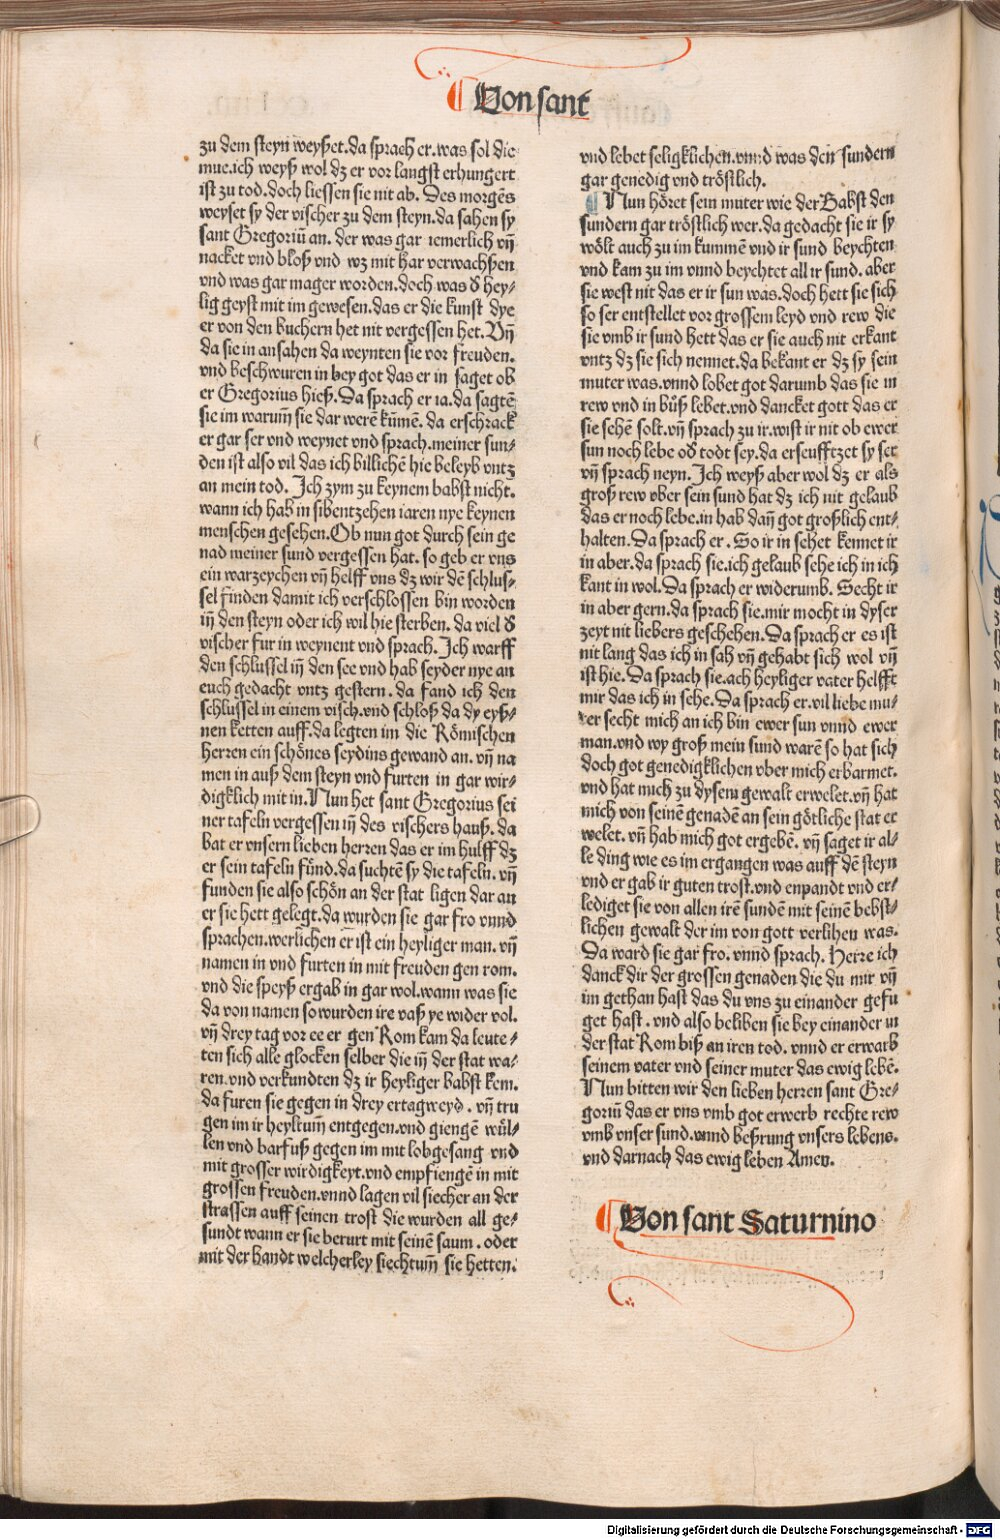 Von sant
zu dem steyn weyßet.da sprach er.was sol die
mue.ich weyß wol dz er vor langst erhungert
ist zu tod.doch liessen sie nit ab. Des morgēs
weyset sy der vischer zu dem steyn.da sahen sy
sant Gregoriū an. der was gar iemerlich vñ
nacket vnd bloß vnd wz mit har verwachßen
vnd was gar mager worden.doch was d̕ hey⸗
lig geyst mit im gewesen.das er die kunst dye
er von den buchern het nit vergessen het.Vñ
da sie in ansahen da weynten sie vor freuden.
vnd beschwuren in bey got das er in saget ob
er Gregorius hieß.Da sprach er ia.da sagtē
sie im warum̄ sie dar werē kūmē. da erschrack
er gar ser vnd weynet vnd sprach.meiner sun⸗
den ist also vil das ich billichē hie beleyb vntz
an mein tod. Ich zym zu keynem babst nicht.
wann ich hab in sibentzehen iaren nye keynen
menschen gesehen.Ob nun got durch sein ge
nad meiner sund vergessen hat. so geb er vns
ein warzeychen vñ helff vns dz wir dē schlus⸗
sel finden damit ich verschlossen bin worden
in̄ den steyn oder ich wil hie sterben. da viel d̕
vischer fur in weynent vnd sprach. Ich warff
den schlussel in̄ den see vnd hab seyder nye an
euch gedacht vntz gestern. da fand ich den
schlussel in einem visch.vnd schloß da dy eyß⸗
nen ketten auff.da legten im die Römischen
herren ein schönes seydins gewand an. vñ na
men in auß dem steyn vnd furten in gar wir⸗
digklich mit in.Nun het sant Gregorius sei
ner tafeln vergessen in̄ des vischers hauß. da
bat er vnsern lieben herren das er im hulff dz
er sein tafeln fünd.da suchtē sy die tafeln. vñ
funden sie also schön an der stat ligen dar an
er sie hett gelegt.da wurden sie gar fro vnnd
sprachen.werlichen er ist ein heyliger man. vñ
namen in vnd furten in mit freuden gen rom.
vnd die speyß ergab in gar wol.wann was sie
da von namen so wurden ire vaß ye wider vol.
vñ drey tag vor ee er gen Rom kam da leute⸗
ten sich alle glocken selber die in̄ der stat wa⸗
ren.vnd verkundten dz ir heyliger babst kem.
da furen sie gegen in drey ertagweyd. vñ tru
gen im ir heyltum̄ entgegen.vnd giengē wül⸗
len vnd barfuß gegen im mit lobgesang vnd
mit grosser wirdigkeyt.vnd empfiengē in mit
grossen freuden.vnnd lagen vil siecher an der
strassen auff seinen trost die wurden all ge⸗
sundt wann er sie berurt mit seinē saum. oder
mit der handt welcherley siechtum̄ sie hetten.
vnd lebet seligklichen.vnnd was den sundern
gar genedig vnd tröstlich.
Nun höret sein muter wie der Babst den
sundern gar tröstlich wer.da gedacht sie ir sy
wölt auch zu im kummē vnd ir sund beychten
vnd kam zu im vnnd beychtet all ir sund. aber
sie west nit das er ir sun was.doch hett sie sich
so ser entstellet vor grossem leyd vnd rew die
sie vmb ir sund hett das er sie auch nit erkant
vntz dz sie sich nennet.da bekant er dz sy sein
muter was.vnnd lobet got darumb das sie in
rew vnd in büß lebet.vnd dancket gott das er
sie sehē solt.vñ sprach zu ir.wist ir nit ob ewer
sun noch lebe od̕ todt sey.da erseufftzet sy ser
vñ sprach neyn.Ich weyß aber wol dz er als
groß rew vber sein sund hat dz ich nit gelaub
das er noch lebe.in hab dan̄ got großlich ent⸗
halten.Da sprach er. So ir in sehet kennet ir
in aber.da sprach sie.ich gelaub sehe ich in ich
kant in wol.Da sprach er widerumb. Secht ir
in aber gern.da sprach sie.mir mocht in dyser
zeyt nit liebers geschehen.Da sprach er es ist
nit lang das ich in sah vñ gehabt sich wol vñ
ist hie.Da sprach sie.ach heyliger vater helfft
mir das ich in sehe.Da sprach er.vil liebe mu⸗
ter secht mich an ich bin ewer sun vnnd ewer
man.vnd wy groß mein sund warē so hat sich
doch got genedigklichen vber mich erbarmet.
vnd hat mich zu dysem gewalt erwelet.vñ hat
mich von seinē genadē an sein götliche stat er
welet. vñ hab mich got ergebē. vñ saget ir al⸗
le ding wie es im ergangen was auff dē steyn
vnd er gab ir guten trost.vnd enpandt vnd er⸗
lediget sie von allen irē sundē mit seinē bebst⸗
lichen gewalt der im von gott verlihen was.
Da ward sie gar fro. vnnd sprach. Herre ich
danck dir der grossen genaden die du mir vñ
im gethan hast das du vns zu einander gefu
get hast. vnd also beliben sie bey einander in
der stat Rom biß an iren tod. vnnd er erwarb
seinem vater vnd seiner muter das ewig lebē.
Nun bitten wir den lieben herren sant Gre⸗
goriū das er vns vmb got erwerb rechte rew
vmb vnser sund.vnnd beßrung vnsers lebens.
vnd darnach das ewig leben Amen.
Von sant Saturnino
Digitalisierung gefördert durch die Deutsche Forschungsgemeinschaft - DFG